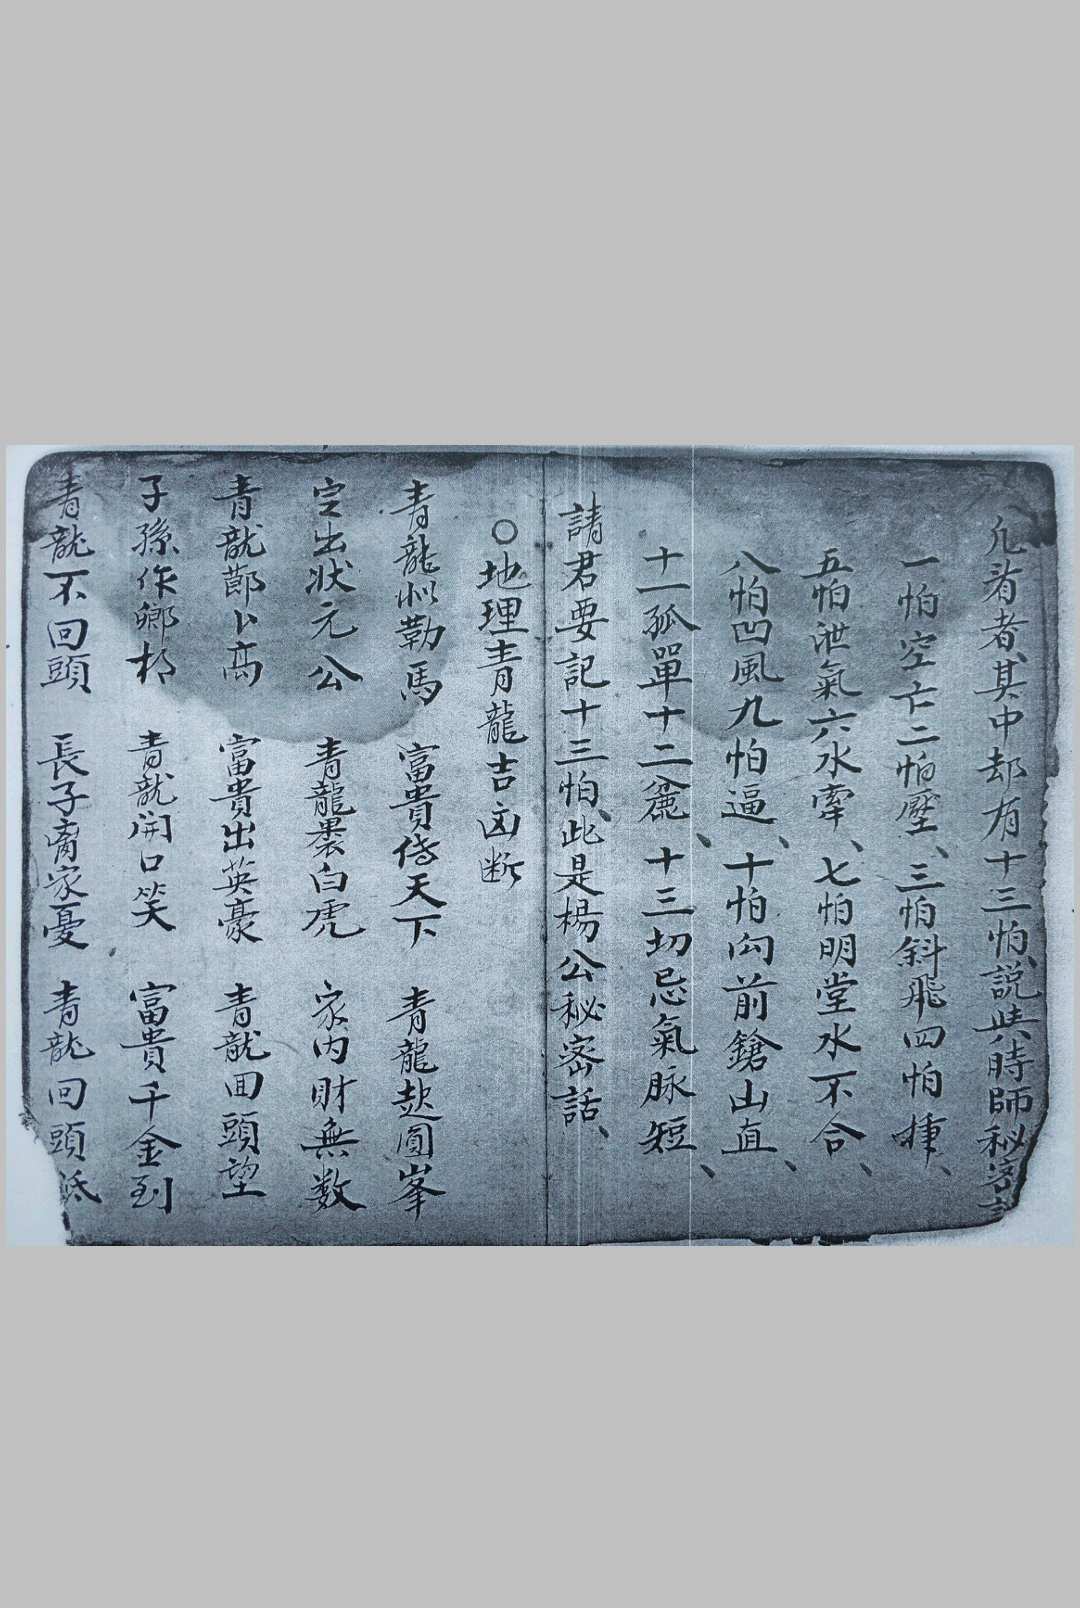 凢着者、其中却有十三怕、説與時師秘密
一怕空亡二怕壓、三怕斜飛四怕揰、
五怕泄氣六水牽、七怕明堂水不合、
八怕凹風九怕逼、十怕向前鎗山直、
十一孤單十二麄、十三切忌氣脉短、
請君要記十三怕、此是楊公秘密話、
○地理青龍吉凶断
青龍似勒馬 富貴傳天下 青龍起圓峯
定出狀元公 青龍裹白虎 家内財無数
青龍節卜高 富貴出英豪 青龍回頭望
子孫作鄉 青龍開口笑 富貴千金到
青龍不回頭 長子家憂 青龍回頭